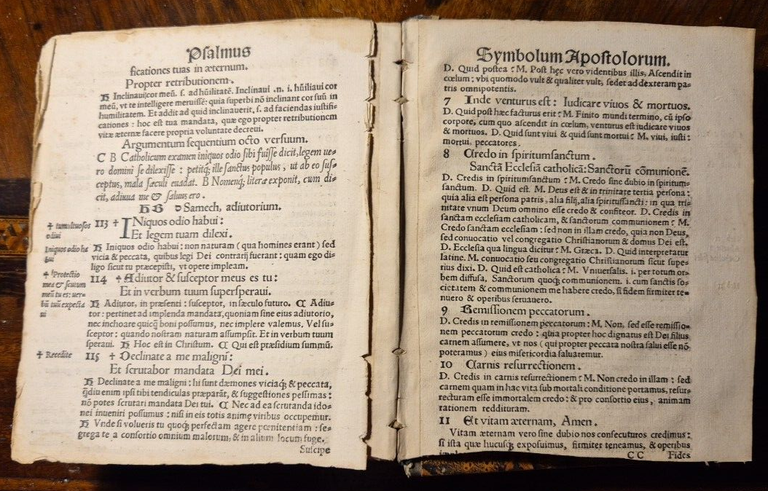 Psalmus
ficationes tuas in æternum.
Propter retributionem.
H Inclinaui cor meũ. s. ad hũilitatẽ. Inclinaui .n. i. hũiliaui cor
meũ, vt te intelligere meruissẽ: quia superbi nõ inclinant cor suũ in
humilitatem. Et addit ad quid inclinauerit, s. ad faciendas iustifi-
cationes: hoc est tua mandata, quæ ego propter retributionem
vitæ æternæ facere propria voluntate decreui.
Argumentum sequentium octo versuum.
C B Catholicum examen iniquos odio sibi fuisse dicit, legem ve-
ro domini se dilexisse: petitq; ille sanctus populus, vt ab eo su-
sceptus, mala sæculi euadat. B Nomenq; literæ exponit, cum di-
cit, adiuua me & saluus ero.
Samech, adiutorium.
✝ tumultuosos odiui
113 ✝ INiquos odio habui:
Et legem tuam dilexi.
Iniquos odio habui
H Iniquos odio habui: non naturam (qua homines erant) sed
vicia & peccata, quibus legi Dei contrarij fuerant: quam ego di-
ligo sicut tu præcepisti, vt opere impleam.
✝ Protectio
mea & scutum
meũ tu es: ver-
bũ tuũ expecta
ui
114 ✝ Adiutor & susceptor meus es tu:
Et in verbum tuum supersperaui.
H Adiutor, in præsenti: susceptor, in sæculo futuro. C Adiu-
tor: pertinet ad implenda mandata, quoniam sine eius adiutorio,
nec inchoare quicq̃ boni possumus, nec implere valemus. Vel su-
sceptor: quando nostram naturam assumpsit. Et in verbum tuum
speraui. H Hoc est in Christum. C Qui est præsidium summũ.
✝ Recedite
115 ✝ Declinate a me maligni:
Et scrutabor mandata Dei mei.
H Declinate a me maligni: hi sunt dæmones viciaq; & peccata,
q̃diu enim ipsi tibi tendiculas præparãt, & suggestiones pessimas:
nõ potes scrutari mandata Dei tui. C Nec ad ea scrutanda ido-
nei inueniri possumus: nisi in eis totis animę viribus occupemur.
H Vnde si volueris tu quoq; perfectam agere pœnitentiam: se-
grega te a consortio omnium malorum, & in alium locum fuge.
Suscipe
Symbolum Apostolorum.
D. Quid postea: M. Post hęc vero videntibus illis, Ascendit in
cœlum: vbi quomodo vult & qualiter vult, sedet ad dexteram pa-
tris omnipotentis.
7 Inde venturus est: Iudicare viuos & mortuos.
D. Quid post hæc facturus erit: M. Finito mundi termino, cũ ipso
corpore, cum quo ascendit in cœlum, venturus est iudicare viuos
& mortuos. D. Qui sunt viui & qui sunt mortui: M. viui, iusti:
mortui. peccatores.
8 Credo in spiritumsanctum.
Sanctã Ecclesiã catholicã: Sanctorũ cõmunionẽ.
D. Credis in spiritumsanctum: M. Credo sine dubio in spiritum-
sanctum. D. Quid est. M. Deus est & in trinitate tertia persona:
quia alia est persona patris, alia filij, alia spiritussancti: in qua tri-
nitate vnum Deum omnino esse credo & confiteor. D. Credis in
sanctam ecclesiam catholicam, & sanctorum communionem: M.
Credo sanctam ecclesiam: sed non in illam credo, quia non Deus,
sed conuocatio vel congregatio Christianorum & domus Dei est.
D. Ecclesia qua lingua dicitur: M. Græca. D. Quid interpretatur
latine. M. conuocatio seu congregatio Christianorum sicut supe-
rius dixi. D. Quid est catholica: M. Vniuersalis. i. per totum or-
bem diffusa. Sanctorum quoq; communionem. i. cum sanctis so-
cietatem & communionem me habere credo, si fidem firmiter te-
nuero & operibus seruauero.
9 Remissionem peccatorum.
D. Credis in remissionem peccatorum: M. Non, sed esse remissio-
nem peccatorum credo: quia propter hoc dignatus est Dei filius
carnem assumere, vt nos (qui propter peccata nostra salui esse nõ
poteramus) eius misericordia saluaremur.
10 Carnis resurrectionem.
D. Credis in carnis resurrectionem: M. Non credo in illam: sed
carnem quam in hac vita sub mortali conditione portamus, resur-
recturam esse immortalem credo: & pro consortio eius, animam
rationem reddituram.
11 Et vitam æternam, Amen.
Vitam æternam vero sine dubio nos consecuturos credimus:
si ista quæ hucusq; exposuimus, firmiter teneamus, & operibus
C C Fides